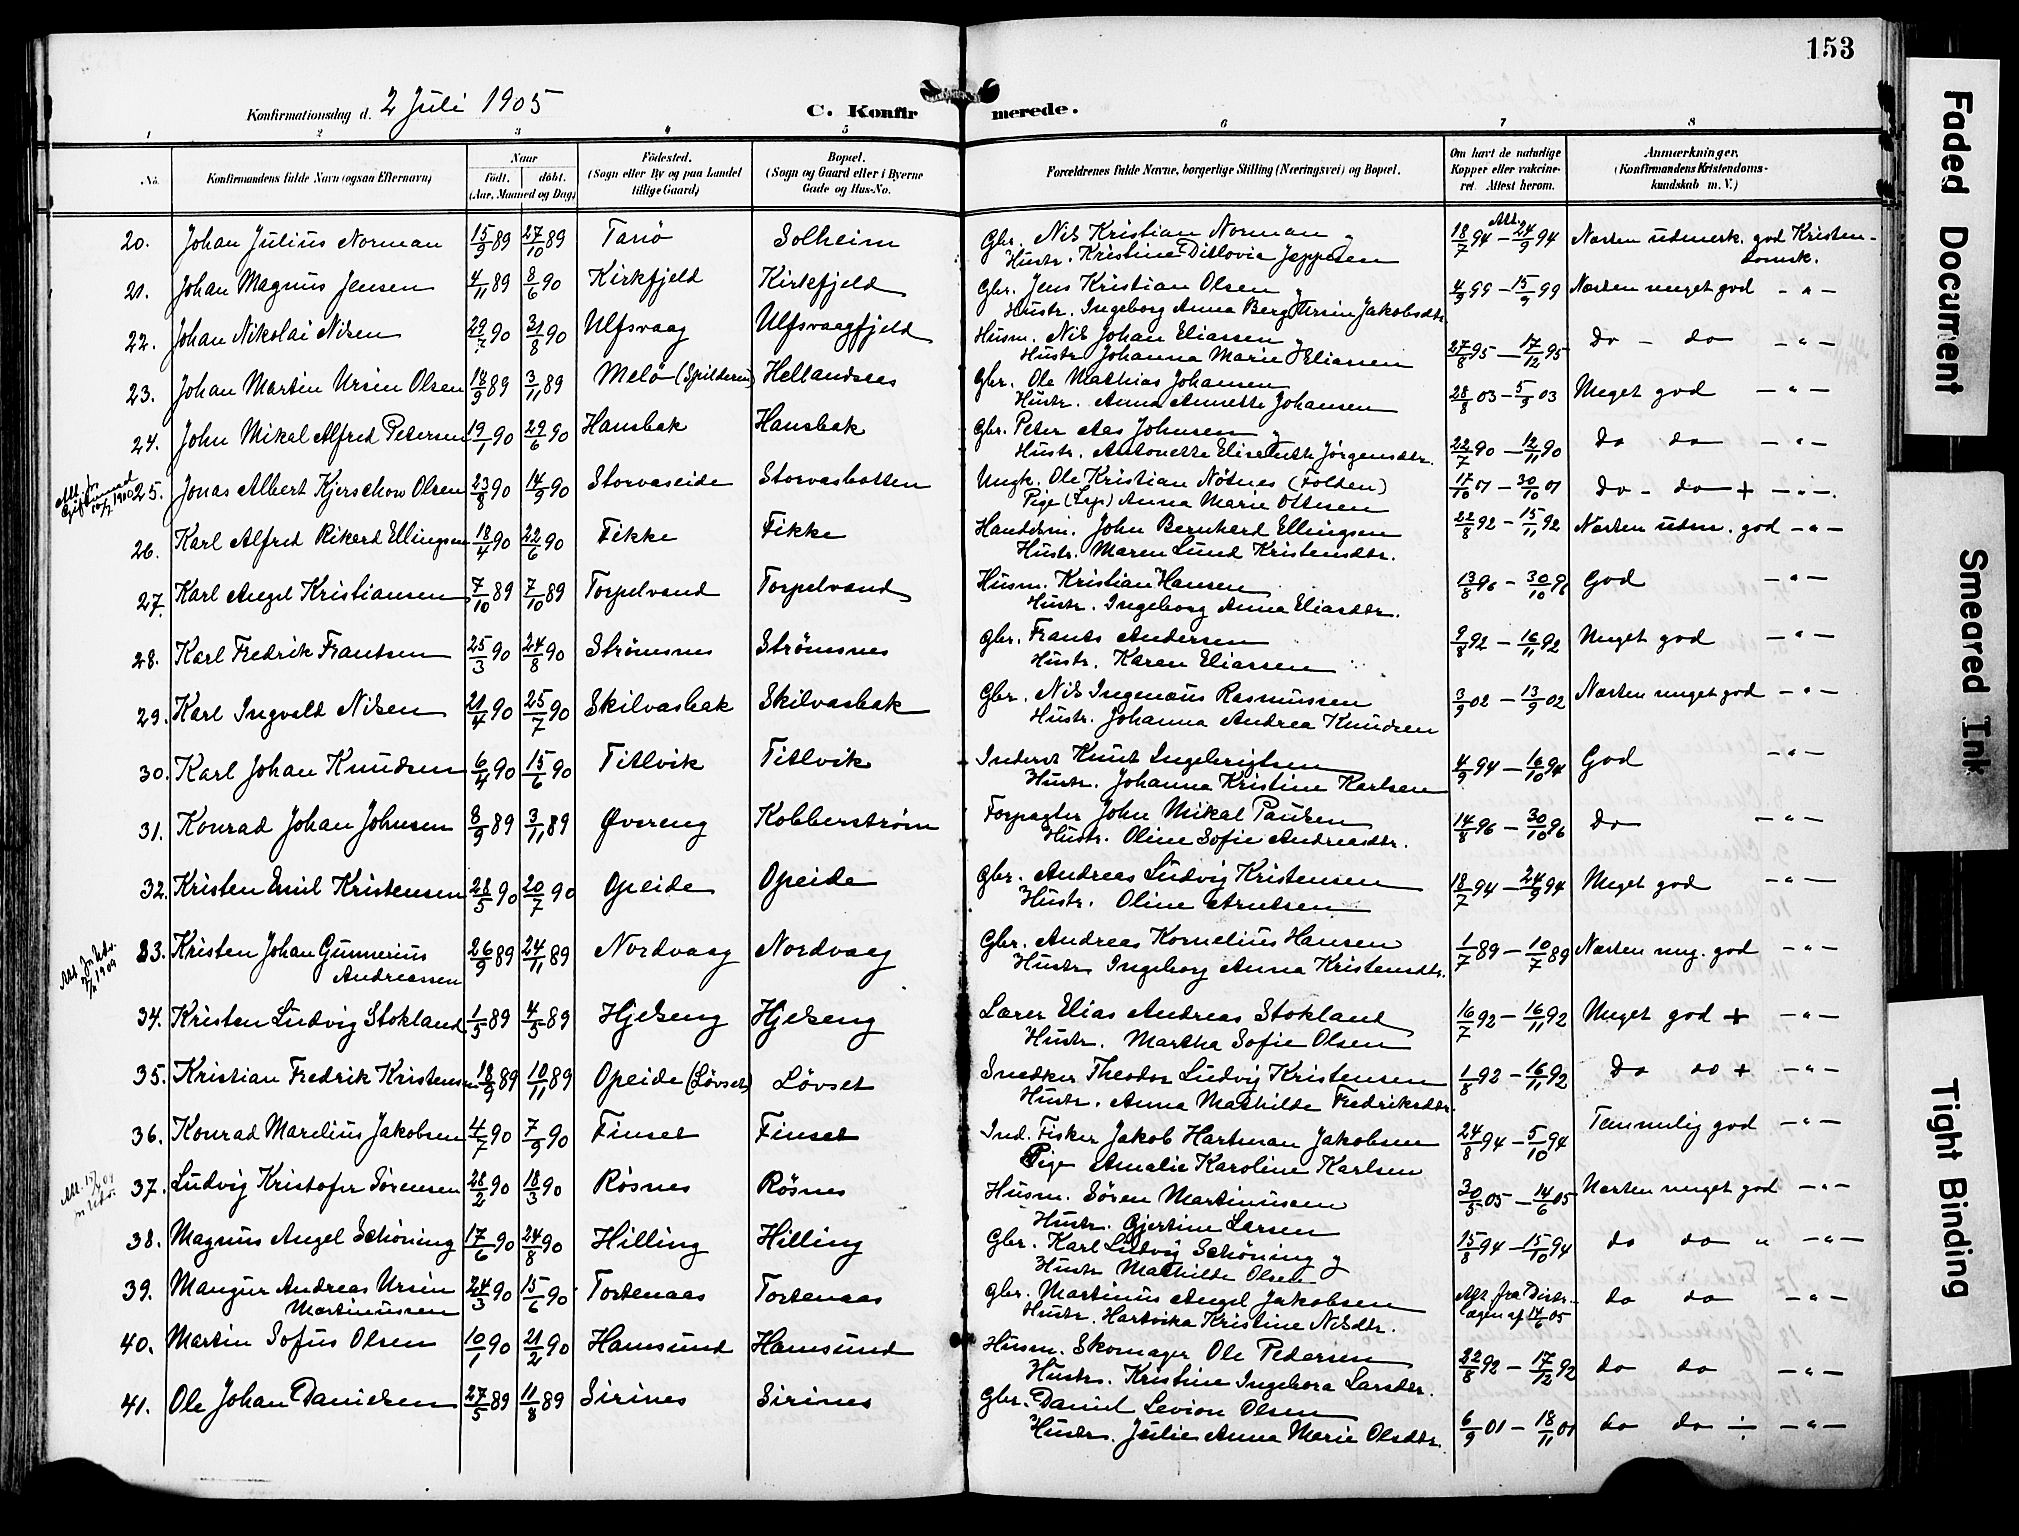 153
Konfirmationsdag d. 2 Juli 1905
C. Konfirmerede.
1 2 3 4 5 6 7 8
No. Konfirmandens fulde Navn (ogsaa Efternavn) Naar født. døbt. (Aar, Maaned og Dag) Fødested. (Sogn eller By og paa Landet tillige Gaard) Bopæl. (Sogn og Gaard eller i Byerne Gade og Hus-No. Forældrenes fulde Navne, borgerlige Stilling (Næringsvei) og Bopæl. Om havt de naturlige Kopper eller vakcineret. Attest herom. Anmærkninger. (Konfirmandens Kristendomskundskab m. V.)
20. Johan Julius Norman 15/9 89 27/10 89 Tanø Solheim Gbr. Nils Kristian Norman og Att. 18/7 94 – 24/9 94 Næsten udmerk. god Kristen-
Hustr. Kristine Ditlovia Jeppesen domsk.
21. Johan Magnus Jensen 4/11 89 8/6 90 Kirkfjeld Kirkfjeld Gbr. Jens Kristian Olsen 4/9 99 – 15/9 99 Næsten meget god – " –
Hustr. Ingeborg Anna Berg Jakobsdtr.
22. Johan Nikolai Nilsen 29/7 90 31/8 90 Ulfsvaag Ulfsvaagfjeld Husm. Nils Johan Eliassen 27/8 95 – 17/12 95 do – do – " –
Hustr. Johanna Marie Eliassen
23. Johan Martin Ursin Olsen 18/9 89 3/11 89 Melø (Spilderen) Hellandsees Gbr. Ole Mathias Johansen 28/8 03 – 5/9 03 Meget god – " –
Hustr. Anna Annette Johansen
24. John Mikal Alfred Petersen 19/1 90 29/6 90 Hansbak Hansbak Gbr. Peter Aas Johnsen 22/7 90 – 12/11 90 do do – " –
Hustr. Antonette Elisebeth Jørgensdtr.
25. Jonas Albert Kjerschow Olsen 23/8 90 14/9 90 Storvaseide Storvasbotten Ungk. Ole Kristian Nötnes (Folden) 17/10 01 – 30/10 01 Do – do + – " –
Pige (Lap) Anna Marie Ottesen
26. Karl Alfred Rikard Ellingsen 18/4 90 22/6 90 Fikke Fikke Handelsm. John Bernhard Ellingsen 22/8 92 – 15/11 92 Næsten udm. god – " –
Hustr. Maren Lund Kristensdtr.
27. Karl Angel Kristiansen 7/10 89 7/10 89 Torpelvand Torpelvand Husm. Kristian Hansen 13/8 96 – 30/10 96 God – " –
Hustr. Ingeborg Anna Eliasdtr.
28. Karl Fredrik Frantsen 25/3 90 24/8 90 Strømsnes Strømsnes Gbr. Frants Andersen 9/8 92 – 16/11 92 Meget god – " –
Hustr. Karen Eliassen
29. Karl Ingvald Nilsen 21/4 90 25/7 90 Skilvasbak Skilvasbak Gbr. Nils Ingemaus Rasmussen 3/9 02 – 13/9 02 Næsten meget god – " –
Hustr. Johanna Andrea Knudsen
30. Karl Johan Knudsen 6/4 90 15/6 90 Titlvik Titlvik Inderst Knut Ingebrigtsen 4/9 94 – 16/10 94 God – " –
Hustr. Johanna Kristine Karlsen
31. Konrad Johan Johnsen 8/9 89 3/11 89 Øvereng Kobberstrøm Forpagter John Mikal Paulsen 14/8 96 – 30/10 96 Do – " –
Hustr. Oline Sofie Andreasdtr.
32. Kristen Emil Kristensen 28/5 90 20/7 90 Opeide Opeide Gbr. Andreas Ludvig Kristensen 18/7 94 – 24/9 94 Meget god – " –
Hustr. Oline Arntsen
33. Kristen Johan Gunnerius 26/9 89 24/11 89 Nordvaag Nordvaag Gbr. Andreas Kornelius Hansen 1/7 89 – 10/7 89 Næsten meg. god – " –
Andreassen Hustr. Ingeborg Anna Kristensdtr.
34. Kristen Ludvig Stokland 1/5 89 4/5 89 Hjelseng Hjelseng Lærer Elias Andreas Stokland 16/7 92 – 16/11 92 Meget god + – " –
Hustr. Martha Sofie Olsen
35. Kristian Fredrik Kristensen 18/9 89 10/11 89 Opeide (Løvset) Løvset Snedker Theodor Ludvig Kristensen 1/8 92 – 16/11 92 Do do + – " –
Hustr. Anna Mathilde Fredriksdtr.
36. Konrad Marelius Jakobsen 4/7 90 7/9 90 Finset Finset Ind. Fisker Jakob Hartman Jakobsen 24/8 94 – 5/10 94 Temmelig god – " –
Pige Amalie Karoline Karlsen
37. Ludvig Kristofer Sørensen 28/2 90 18/3 90 Røsnes Røsnes Husm. Søren Martinussen 30/5 05 – 14/6 05 Næsten meget god – " –
Hustr. Gjertine Larsen
38. Magnus Angel Schøning 17/6 90 24/8 90 Hilling Hilling Gbr. Karl Ludvig Schøning og 15/8 94 – 15/10 94 do do " – " –
Hustr Mathilde Olsen
39. Mangur Andreas Ursin 24/3 90 15/6 90 Tortenaas Tortenaas Gbr. Martinus Angel Jakobsen Att fra Distr- do do – " –
Martinussen Hustr. Hartvika Kristine Nilsdtr. lægen af 14/6 05
40. Martin Sofus Olsen 10/1 90 21/2 90 Hamsund Hamsund Husm. Skomager Ole Pedersen 22/8 92 – 17/12 92 do do – " –
Hustr. Kristine Ingebora Larsdtr.
41. Ole Johan Danielsen 27/5 89 11/8 89 Sirines Sirines Gbr. Daniel Levion Olsen 6/9 01 – 18/11 01 do do ÷ – " –
Hustr. Julie Anna Marie Olsdtr.
Faded Document
Smeared Ink
Tight Binding